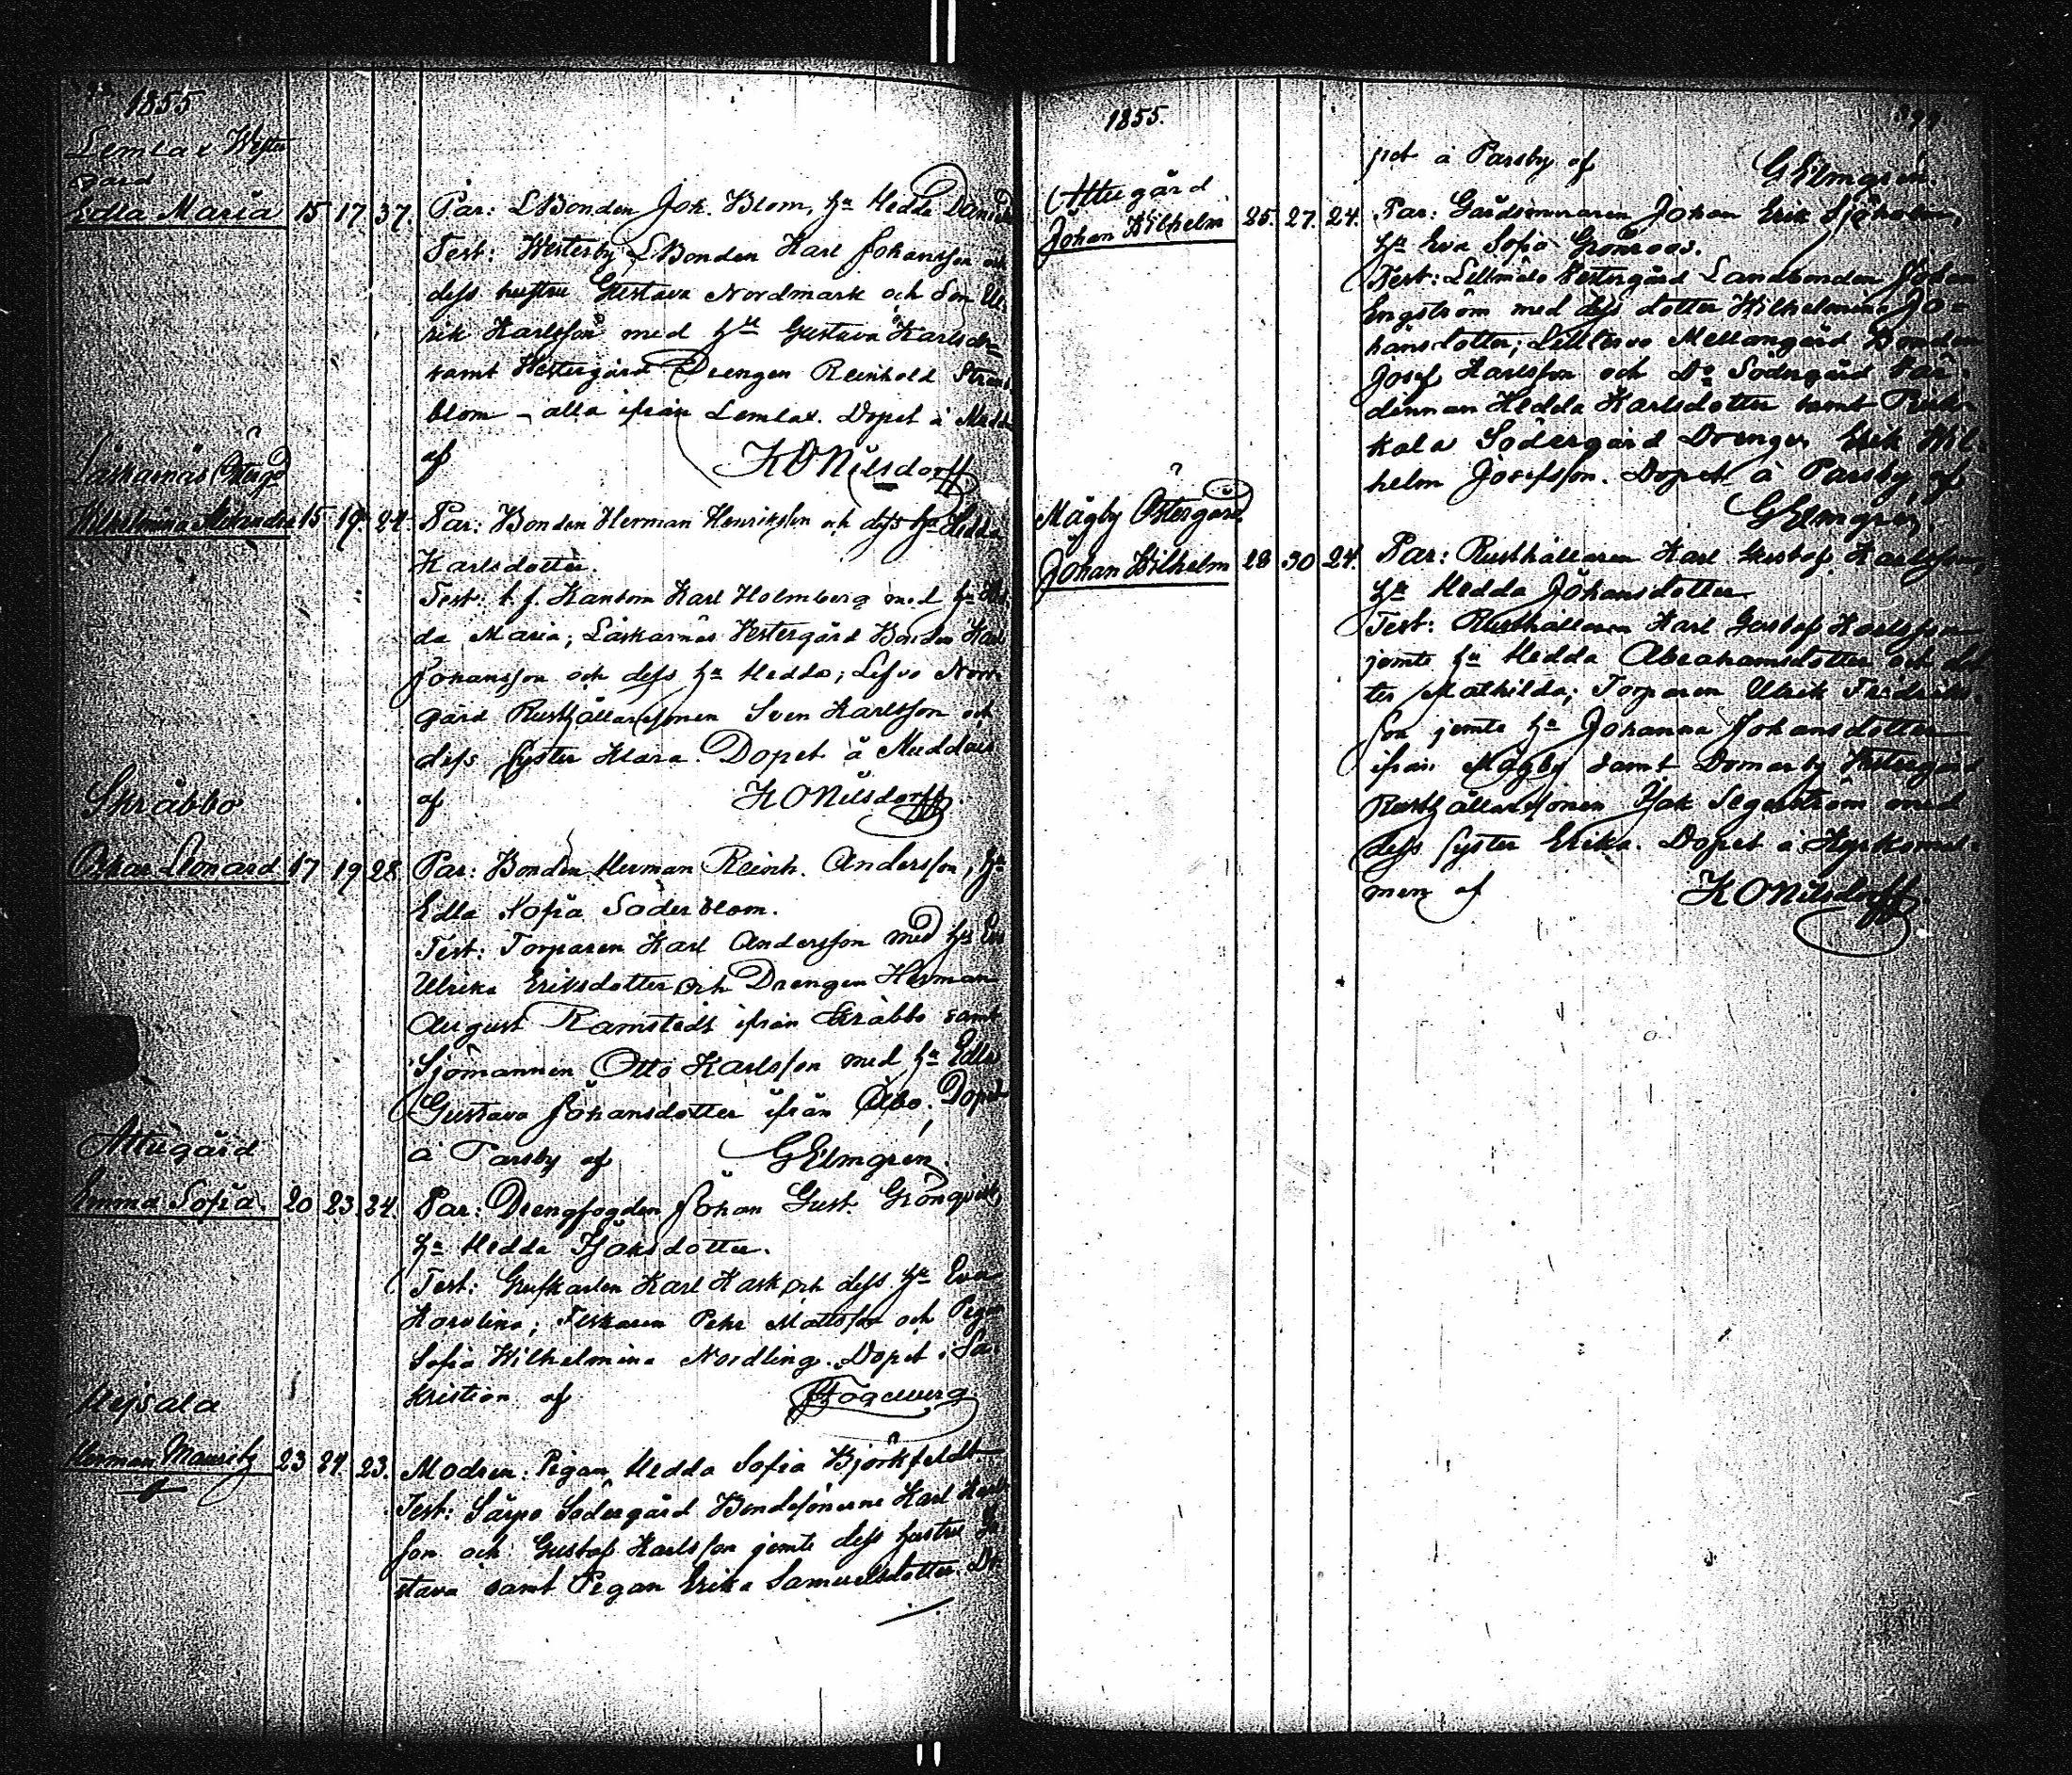 1855
Lemlax Wester
gård
Edla Maria 15 17 37. Par: LBonden Joh. Blom, hu Hedda
Test: Westerby LBonden Karl Johansson och
dess hustru Gustava Nordmark och Son Ul-
rik Karlsson med hu Gustava Karlsdr
samt Westergård Drengen Reinhold Strand
blom – alla ifrån Lemlax. Dopet å
af K O Nilsdorff
Läskarnäs
Wilhelmina Alexandra 15 19 24. Par: Bonden Herman Henriksson och dess hu Hedda
Karlsdotter.
Test: t. f. Kantorn Karl Holmberg med hu
da Maria; Läskarnäs Westergård Bonden Karl
Johansson och dess hu Hedda; Lefvo Norr
gård Rusthållaresonen Sven Karlsson och
dess Syster Klara. Dopet å Muddais
af K O Nilsdorff.
Skräbbo
Oskar Leonard 17 19 28 Par: Bonden Herman Reinh. Andersson, hu
Edla Sofia Söderblom.
Test: Torparen Karl Andersson med hu Eva
Ulrika Eriksdotter och Drengen Herman
August Ramstedt ifrån Skräbbo samt
Sjömannen Otto Karlsson med hu Edla
Gustava Johansdotter ifrån Åbo. Dopet
å Parsby af G Elmgren.
Attugård
Emma Sofia. 20 23 24. Par: Drengfogden Johan Gust. Grönqvist,
hu Hedda Isaksdotter.
Test: Karl Kask och dess hu Eva
Karolina; Fiskaren Pehr Mattsson och Pigan
Sofia Wilhelmina Nordling. Dopet i Sa-
kristian af
Heisala
Herman Mauritz 23 24 23. Modren: Pigan Hedda Sofia Björkfeldt.
Test: Sorpo Södergård Bondesönerne Karl Karls
son och Gustaf Karlsson jemte dess hustru Gu
stava samt Pigan Erika Samuelsdotter. Do
1855.
pet å Parsby af G Elmgren.
Attugård
Johan Wilhelm 25. 27. 24. Par: Gårdsmuraren Johan Erik Sjöholm,
hu Eva Sofia Grönroos.
Test: Lillmälo Westergård Landbonden Johan
Engström med dess dotter Wilhelmina Jo-
hansdotter; Mellangård Bonden
Josef Karlsson och Do Södergård Vär-
dinnan Hedda Karlsdotter samt
kala Södergård Drengen Erik Wil-
helm Josefsson. Dopet å Parsby af
G Elmgren.
Mågby Östergård
Johan Wilhelm 28 30 24. Par: Rusthållaren Karl Gustaf Karlsson,
hu Hedda Johansdotter
Test: Rusthållaren Karl Gustaf Karlsson
jemte hu Hedda Abrahamsdotter och dot
ter Mathilda; Torparen Ulrik Fredriks-
son jemte hu Johanna Johansdotter
ifrån Mågby samt Domarby Westergård
Rusthållaresonen Isak Segerström med
dess syster Erika. Dopet å
men af K O Nilsdorff.